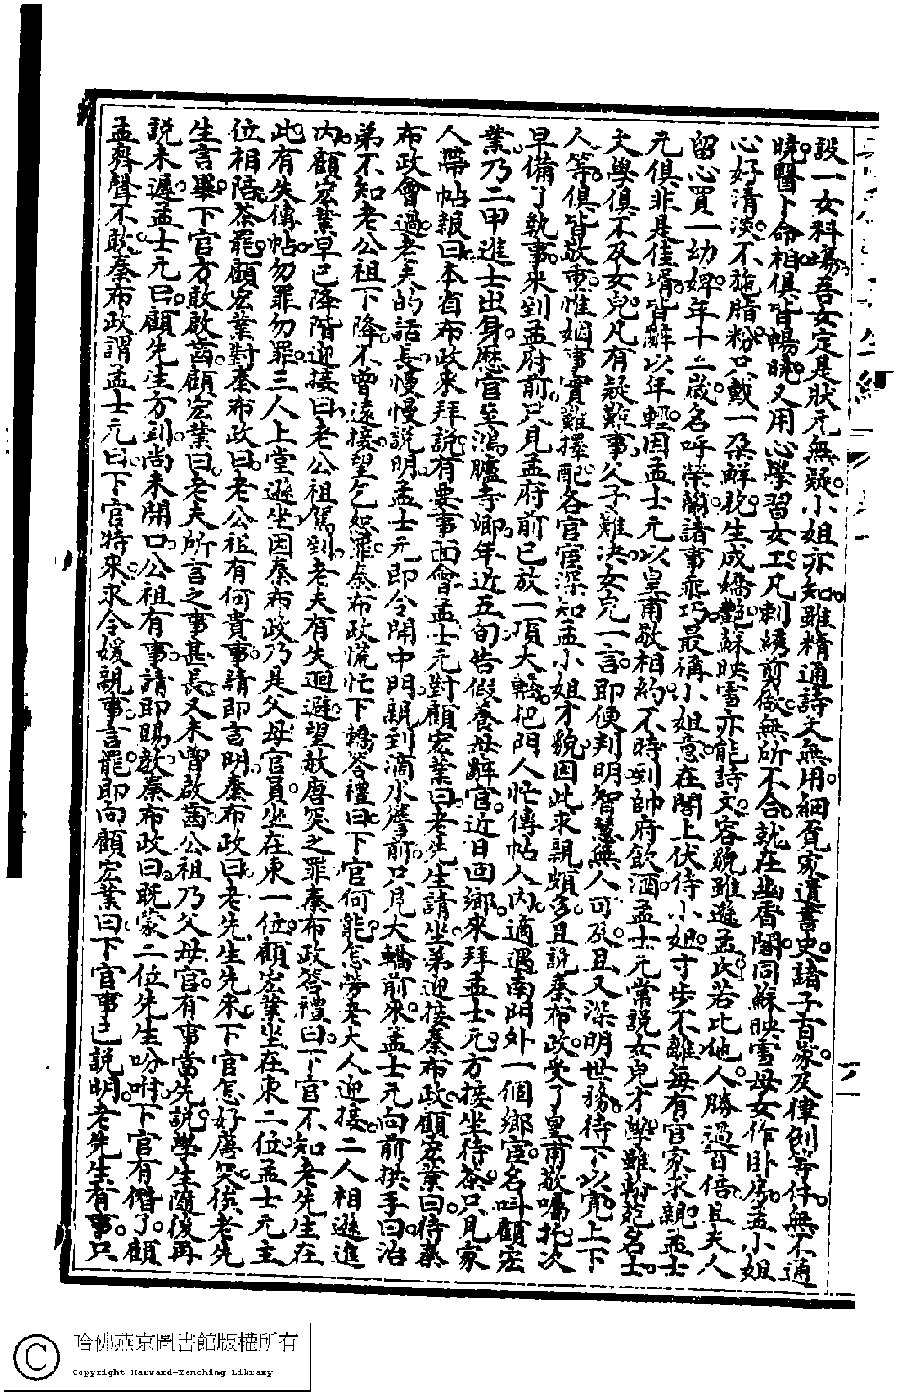 設一女科場吾女定是狀元無疑小姐亦知雖精通詩文無用細覓家遺書史諸子百家及律例等件無不通
曉醫卜命相俱皆暢曉又用心學習女工凡刺綉剪裁無所不合就在幽香閣同蘇映雪母女作卧房孟小姐
心好清淡不施脂粉只戴一朶鮮花生成嬌艷蘇映雪亦能詩文容貌雖遜孟氏若比他人勝過百倍且夫人
留心買一幼婢年十二歲名呼榮蘭諸事乖巧最稱小姐意在閣上伏侍小姐寸步不離每有官家求親孟士
元俱非是佳壻皆辭以年輕因孟士元以皇甫敬相約不時到帥府飲酒孟士元常說女兒才學雖翰苑名士
文學俱不及女兒凡有疑難事父子難決女兒一言即便判明智慧無人可及且又深明世務待下以寬上下
人等俱皆敬重惟姻事實難擇配各官宦深知孟小姐才貌因此求親頗多且說秦布政受了皇甫敬囑托次
早備了執事來到孟府前只見孟府前已放一頂大轎把門人忙傳帖入內適遇南門外一個鄉宦名叫顧宏
業乃二甲進士出身歷官至鴻臚寺卿年近五旬告假養母辭官近日回鄉來拜孟士元方接坐待茶只見家
人帶帖報曰本省布政來拜說有要事面會孟士元對顧宏業曰老先生請坐弟迎接秦布政顧宏業曰待秦
布政會過老夫的話長慢慢說明孟士元即令開中門親到滴水簷前只見大轎前來孟士元向前拱手曰治
弟不知老公祖下降不曾遠接望乞恕罪秦布政慌忙下轎答禮曰下官何能怎勞老大人迎接二人相遜進
內顧宏業早已降階迎接曰老公祖駕到老夫有失迴避望赦唐突之罪秦布政答禮曰下官不知老先生在
此有失傳帖勿罪勿罪三人上堂遜坐因秦布政乃是父母官員坐在東一位顧宏業坐在東二位孟士元主
位相陪茶罷顧宏業對秦布政曰老公祖有何貴事請即言明秦布政曰老先生先來下官怎好唐突俟老先
生言畢下官方敢啟齒顧宏業曰老夫所言之事甚長又未嘗啟齒公祖乃父母官有事當先說學生隨後再
說未遲孟士元曰顧先生方到尚未開口公祖有事請即賜教秦布政曰既蒙二位先生吩咐下官有僭了顧
孟齊聲不敢秦布政謂孟士元曰下官特來求令媛親事言罷即向顧宏業曰下官事已說明老先生有事只
哈佛燕京圖書館版權所有
Copyright Harvard-Yenching Library